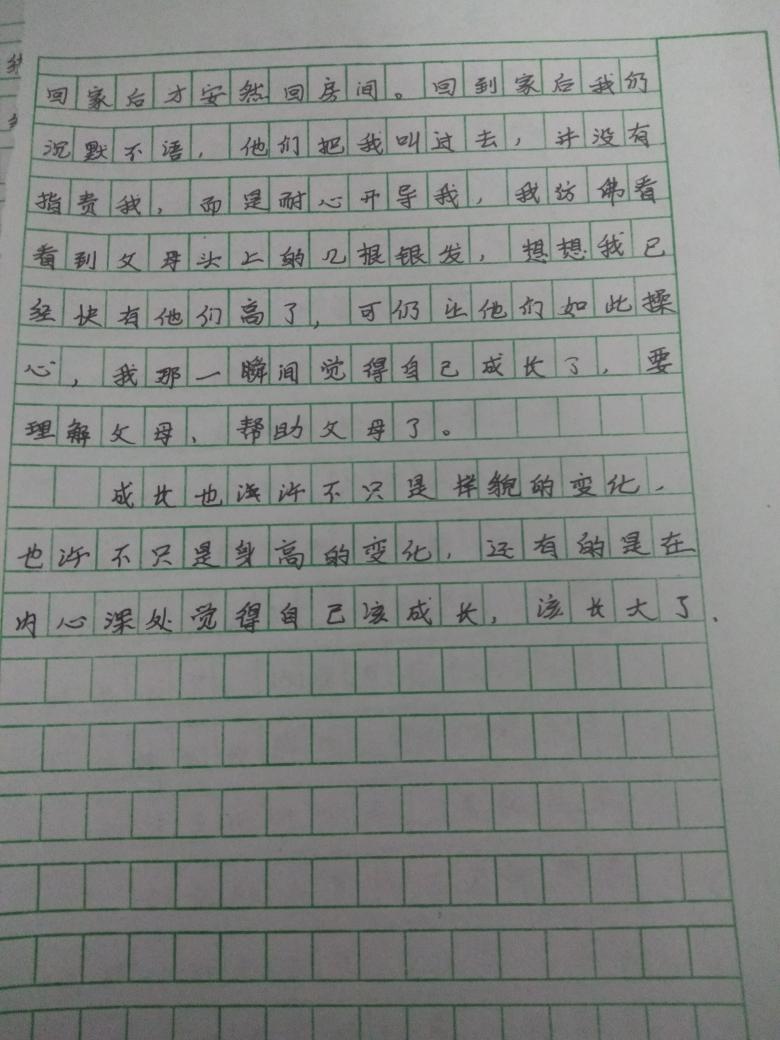 回家后才安然回房间。回到家后我仍
沉默不语，他们把我叫过去，并没有
指责我，而是耐心开导我，我纺佛看
看到父母头上的几根银发，想想我已
经快有他们高了，可仍让他们如此操
心，我那一瞬间觉得自己成长了，要
理解父母、帮助父母了。
成长也许不只是样貌的变化，
也许不只是身高的变化，还有的是在
内心深处觉得自己该成长，该长大了.